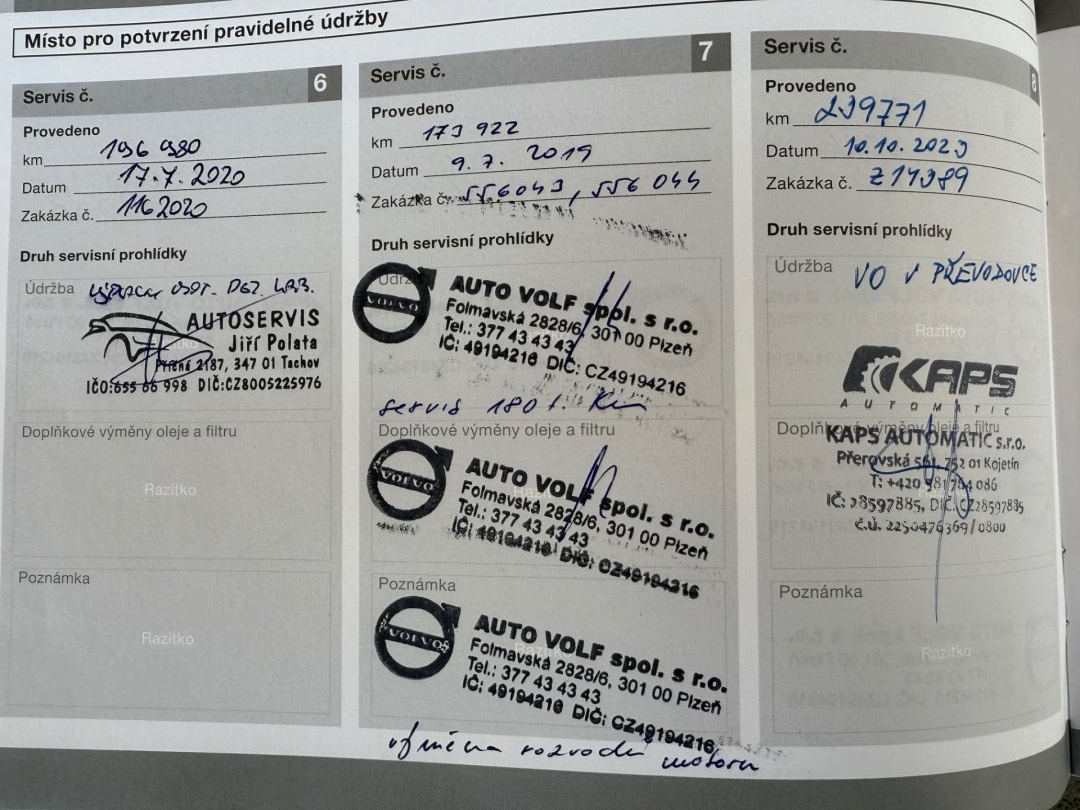 Místo pro potvrzení pravidelné údržby
Servis č. 6
Provedeno
km 196 980
Datum 17.7.2020
Zakázka č. 1162020
Druh servisní prohlídky
Údržba
AUTOSERVIS
Jiří Polata
2187, 347 01 Tachov
IČO:655 66 998 DIČ:CZ8005225976
Doplňkové výměny oleje a filtru
Razítko
Poznámka
Razítko
Servis č. 7
Provedeno
km 173 922
Datum 9.7. 2019
Zakázka č. 556043, 556 044
Druh servisní prohlídky
Údržba
VOLVO
AUTO VOLF spol. s r.o.
Folmavská 2828/6, 301 00 Plzeň
Tel.: 377 43 43 43
IČ: 49194216 DIČ: CZ49194216
servis 180 t. km
Doplňkové výměny oleje a filtru
VOLVO
AUTO VOLF spol. s r.o.
Folmavská 2828/6, 301 00 Plzeň
Tel.: 377 43 43 43
IČ: 49194216 DIČ: CZ49194216
Poznámka
VOLVO
AUTO VOLF spol. s r.o.
Folmavská 2828/6, 301 00 Plzeň
Tel.: 377 43 43 43
IČ: 49194216 DIČ: CZ49194216
výměna rozvodů motoru
Servis č. 8
Provedeno
km 239771
Datum 10.10.2023
Zakázka č. Z14389
Druh servisní prohlídky
Údržba VO V PŘEVODOVCE
Razítko
KAPS
AUTOMATIC
Doplňkové výměny oleje a filtru
KAPS AUTOMATIC s.r.o.
Přerovská 561, 752 01 Kojetín
T: +420 581 764 086
IČ: 28597885, DIČ: CZ28597885
č.ú. 2250476369/0800
Poznámka
Razítko